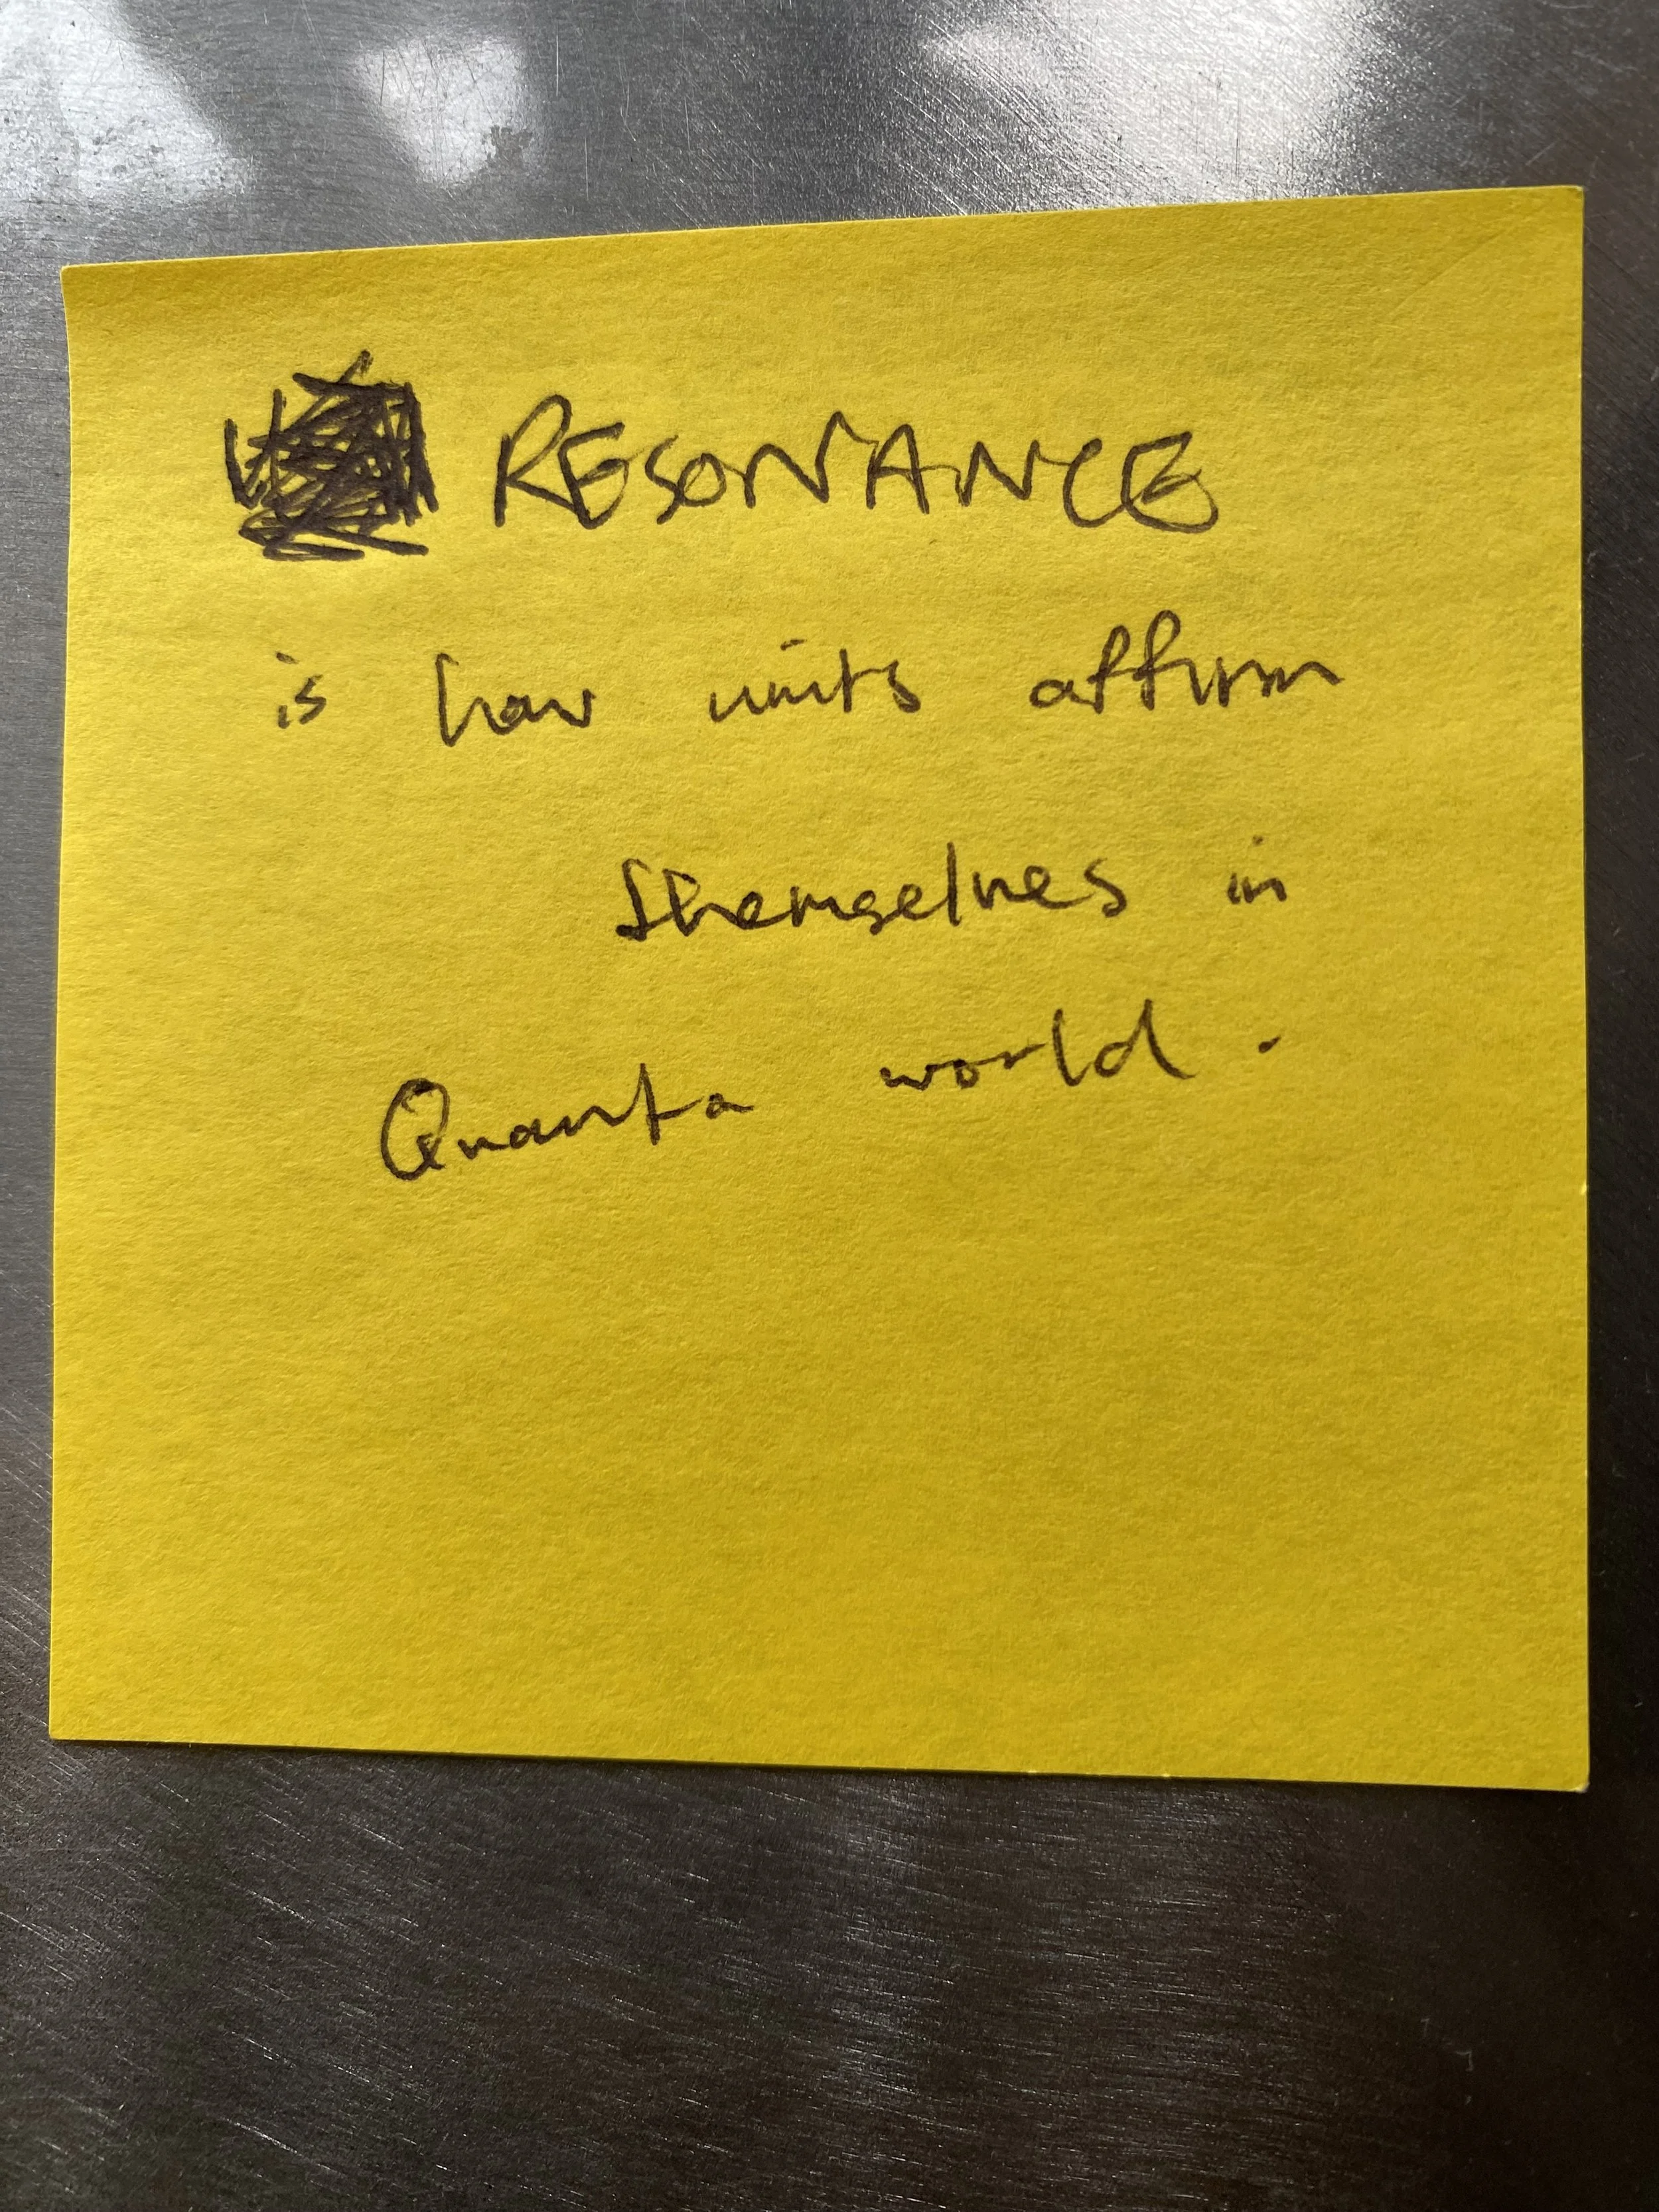 RESONANCE
is how units affirm
themselves in
Quanta world.